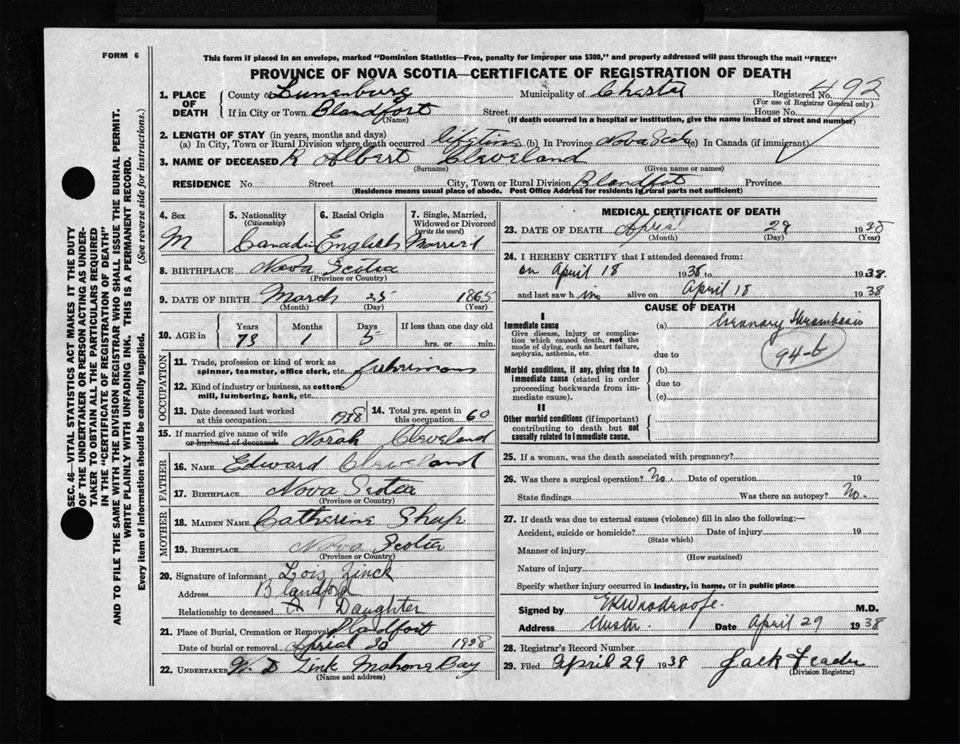 FORM 6
This form if placed in an envelope, marked "Dominion Statistics—Free, penalty for improper use $300," and properly addressed will pass through the mail "FREE"
PROVINCE OF NOVA SCOTIA—CERTIFICATE OF REGISTRATION OF DEATH
SEC. 46—VITAL STATISTICS ACT MAKES IT THE DUTY
OF THE UNDERTAKER OR PERSON ACTING AS UNDER-
TAKER TO OBTAIN ALL THE PARTICULARS REQUIRED
IN THE "CERTIFICATE OF REGISTRATION OF DEATH"
AND TO FILE THE SAME WITH THE DIVISION REGISTRAR WHO SHALL ISSUE THE BURIAL PERMIT.
WRITE PLAINLY WITH UNFADING INK. THIS IS A PERMANENT RECORD.
Every item of information should be carefully supplied. (See reverse side for instructions.)
1. PLACE OF DEATH
County of Lunenburg Municipality of Chester Registered No. 492
(For use of Registrar General only)
If in City or Town Blandfort Street House No.
(Name) (If death occurred in a hospital or institution, give the name instead of street and number)
2. LENGTH OF STAY (in years, months and days)
(a) In City, Town or Rural Division where death occurred lifetime (b) In Province Nova Scotia (c) In Canada (if immigrant)
3. NAME OF DECEASED R Albert Cleveland
(Surname) (Given name or names)
RESIDENCE No. Street City, Town or Rural Division Blandfot Province
(Residence means usual place of abode. Post Office Address for residents in rural parts not sufficient)
4. Sex M
5. Nationality (Citizenship) Canadin
6. Racial Origin English
7. Single, Married, Widowed or Divorced (write the word) Married
8. BIRTHPLACE Nova Scotia
(Province or Country)
9. DATE OF BIRTH March 25 1865
(Month) (Day) (Year)
10. AGE in Years 73 Months 1 Days 5 If less than one day old hrs. or min.
OCCUPATION
11. Trade, profession or kind of work as spinner, teamster, office clerk, etc.
12. Kind of industry or business, as cotton mill, lumbering, bank, etc.
13. Date deceased last worked at this occupation 1938
14. Total yrs. spent in this occupation 60
15. If married give name of wife or husband of deceased Norah Cleveland
FATHER
16. NAME Edward Cleveland
17. BIRTHPLACE Nova Scotia
(Province or Country)
MOTHER
18. MAIDEN NAME Catherine Shap
19. BIRTHPLACE Nova Scotia
(Province or Country)
20. Signature of informant Lois Zinck
Address Blandford
Relationship to deceased Daughter
21. Place of Burial, Cremation or Removal Blandfort
Date of burial or removal Aprial 30 1938
22. UNDERTAKER W. D Zink Mahone Bay
(Name and address)
MEDICAL CERTIFICATE OF DEATH
23. DATE OF DEATH April 29 1938
(Month) (Day) (Year)
24. I HEREBY CERTIFY that I attended deceased from:
on April 18 1938 to 1938
and last saw him alive on April 18 1938
CAUSE OF DEATH
I
Immediate cause
Give disease, injury or complication which caused death, not the mode of dying, such as heart failure, asphyxia, asthenia, etc
(a) Coronary Thrombosis
94-b
due to
Morbid conditions, if any, giving rise to immediate cause (stated in order proceeding backwards from immediate cause).
(b)
due to
(c)
II
Other morbid conditions (if important) contributing to death but not causally related to immediate cause.
25. If a woman, was the death associated with pregnancy?
26. Was there a surgical operation? No. Date of operation 19
State findings Was there an autopsy? No.
27. If death was due to external causes (violence) fill in also the following:—
Accident, suicide or homicide? Date of injury 19
(State which)
Manner of injury
(How sustained)
Nature of injury
Specify whether injury occurred in industry, in home, or in public place
Signed by EKWoodroofe. M.D.
Address Chester. Date April 29 1938
28. Registrar's Record Number
29. Filed April 29 1938 Jack
(Division Registrar)